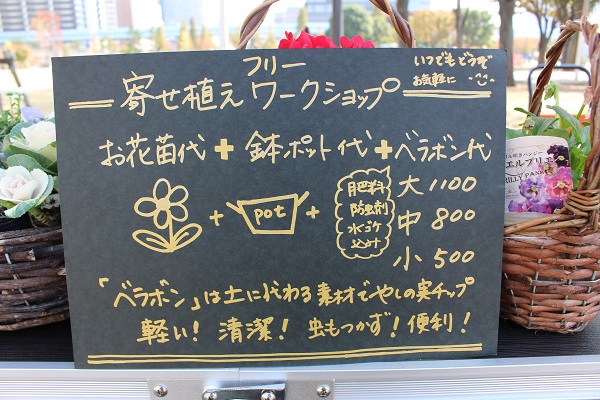 フリー
寄せ植えワークショップ
いつでもどうぞ
お気軽に
お花苗代＋鉢ポット代＋ベラボン代
＋ pot ＋
肥料
防虫剤
水ゴケ
込み!!
大 1100
中 800
小 500
「ベラボン」は土に代わる素材でやしの実チップ
軽い！清潔！虫もつかず！便利！
エルブリエ